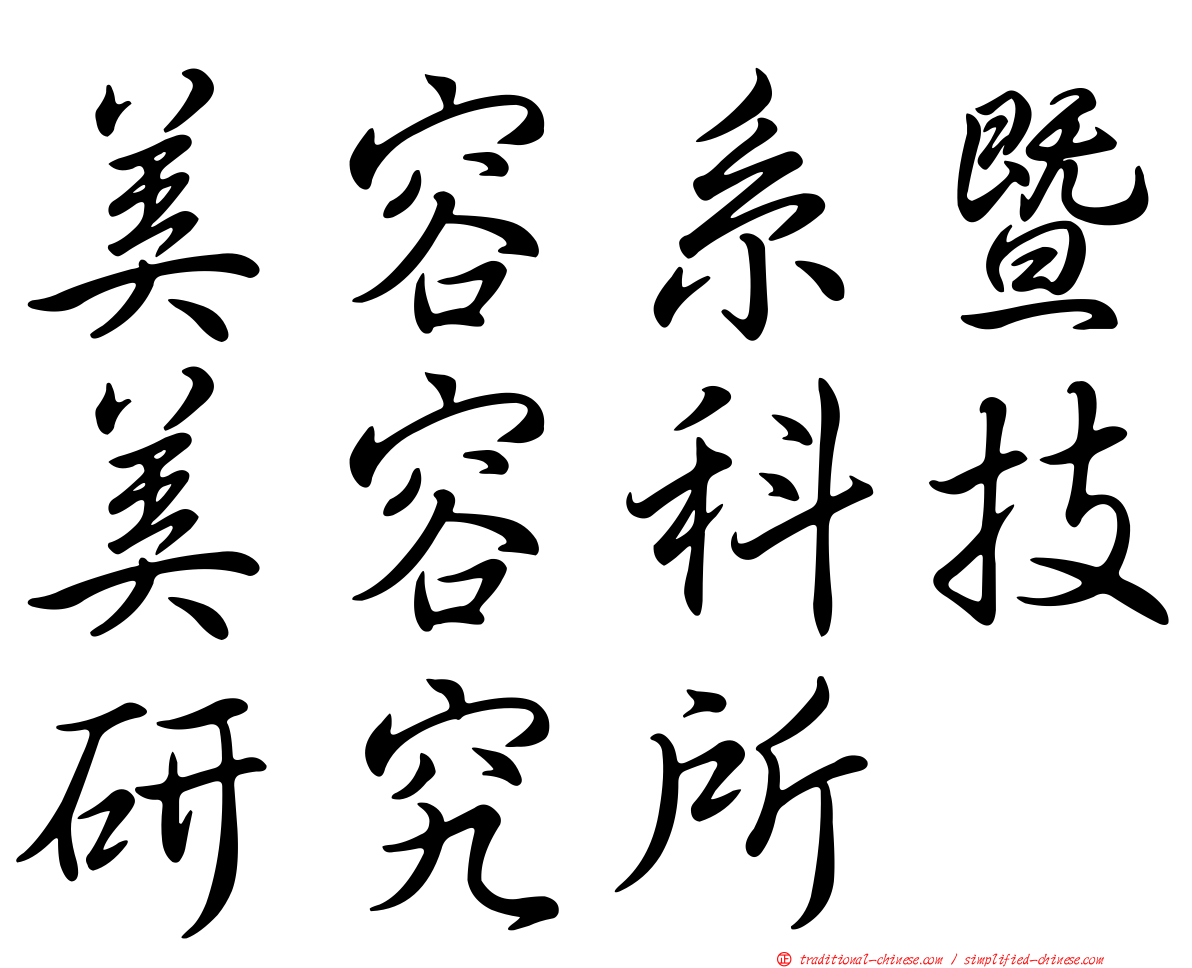 美容系暨
美容科技
研究所
㊣ traditional-chinese.com / simplified-chinese.com